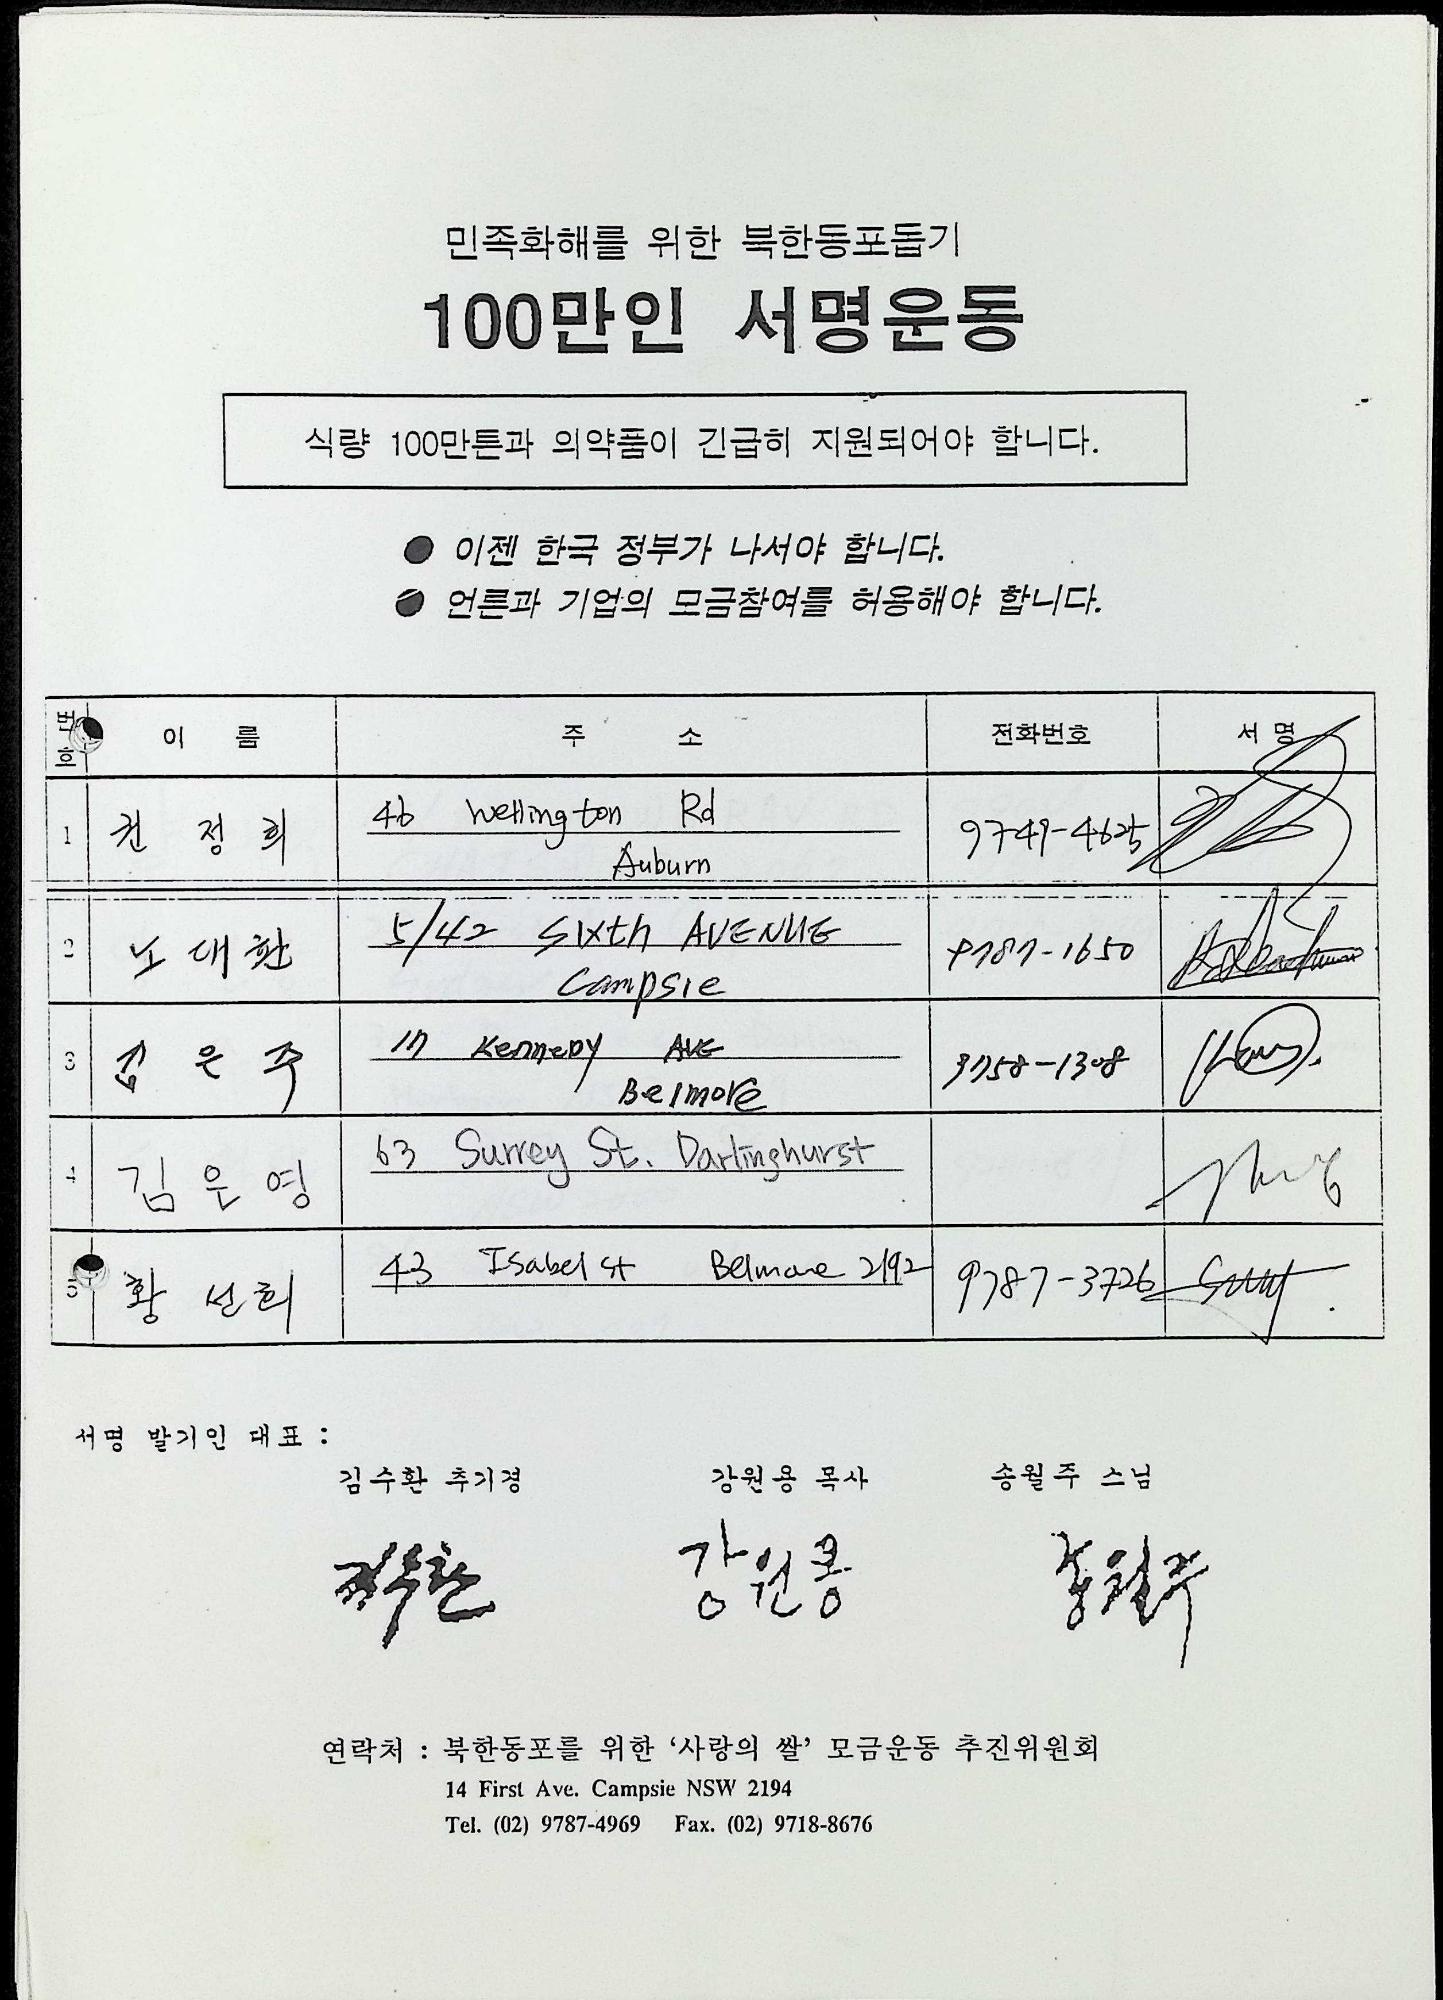 민족화해를 위한 북한동포돕기
100만인 서명운동
식량 100만톤과 의약품이 긴급히 지원되어야 합니다.
● 이젠 한국 정부가 나서야 합니다.
● 언론과 기업의 모금참여를 허용해야 합니다.
번호 이 름 주 소 전화번호 서 명
1 권 정 희 46 Wellington Rd 9749-4625
Auburn
2 노 대 환 5/42 Sixth AVENUE 9787-1650
Campsie
3 김 은 주 17 KenneDy AVE 9758-1308
Belmore
4 김 은 영 63 Surrey St. Darlinghurst
5 황 선 희 43 Isabel st Belmore 2192 9787-3726
서명 발기인 대표 :
김수환 추기경 강원용 목사 송월주 스님
김수환 강원용 송월주
연락처 : 북한동포를 위한 '사랑의 쌀' 모금운동 추진위원회
14 First Ave. Campsie NSW 2194
Tel. (02) 9787-4969 Fax. (02) 9718-8676